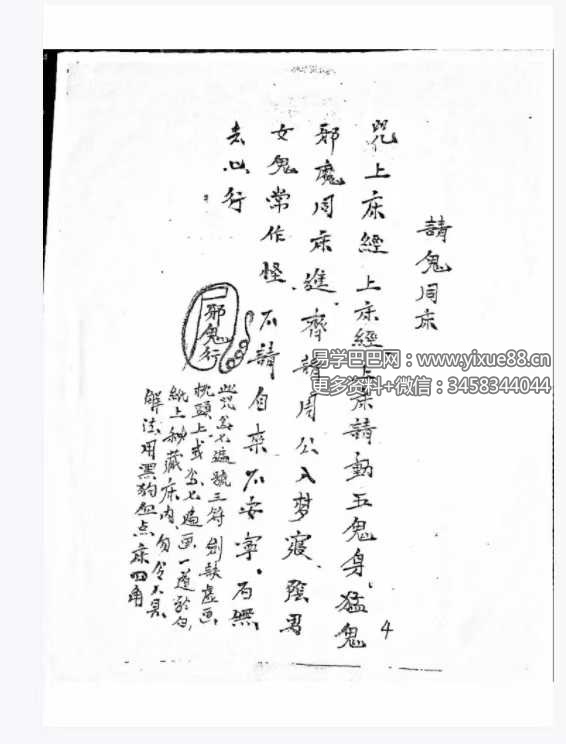 請鬼同床
咒上床經上床經上床請動五鬼身.猛鬼
邪魔同床進.齊請周公入夢寢.陰男
女鬼常作怪.不請自來不安寧.而無
去心行
邪鬼行
此咒念七遍號三符劍訣虛画
枕頭上或念七遍画一道於白
紙上秘藏床内勿令人見
解法用黑狗血点床四角
4
易学巴巴网：www.yixue88.cn
更多资料+微信：3458344044